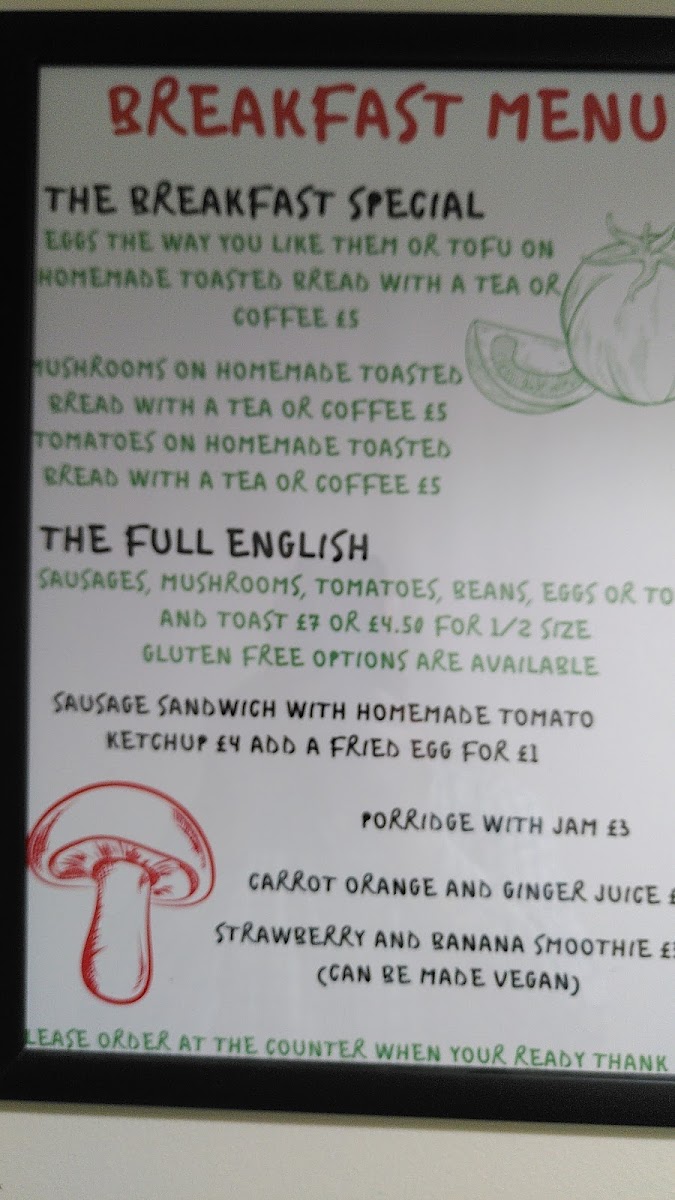 BREAKFAST MENU
THE BREAKFAST SPECIAL
EGGS THE WAY YOU LIKE THEM OR TOFU ON
HOMEMADE TOASTED BREAD WITH A TEA OR
COFFEE £5
MUSHROOMS ON HOMEMADE TOASTED
BREAD WITH A TEA OR COFFEE £5
TOMATOES ON HOMEMADE TOASTED
BREAD WITH A TEA OR COFFEE £5
THE FULL ENGLISH
SAUSAGES, MUSHROOMS, TOMATOES, BEANS, EGGS OR TO
AND TOAST £7 OR £4.50 FOR 1/2 SIZE
GLUTEN FREE OPTIONS ARE AVAILABLE
SAUSAGE SANDWICH WITH HOMEMADE TOMATO
KETCHUP £4 ADD A FRIED EGG FOR £1
PORRIDGE WITH JAM £3
CARROT ORANGE AND GINGER JUICE £
STRAWBERRY AND BANANA SMOOTHIE £
(CAN BE MADE VEGAN)
LEASE ORDER AT THE COUNTER WHEN YOUR READY THANK